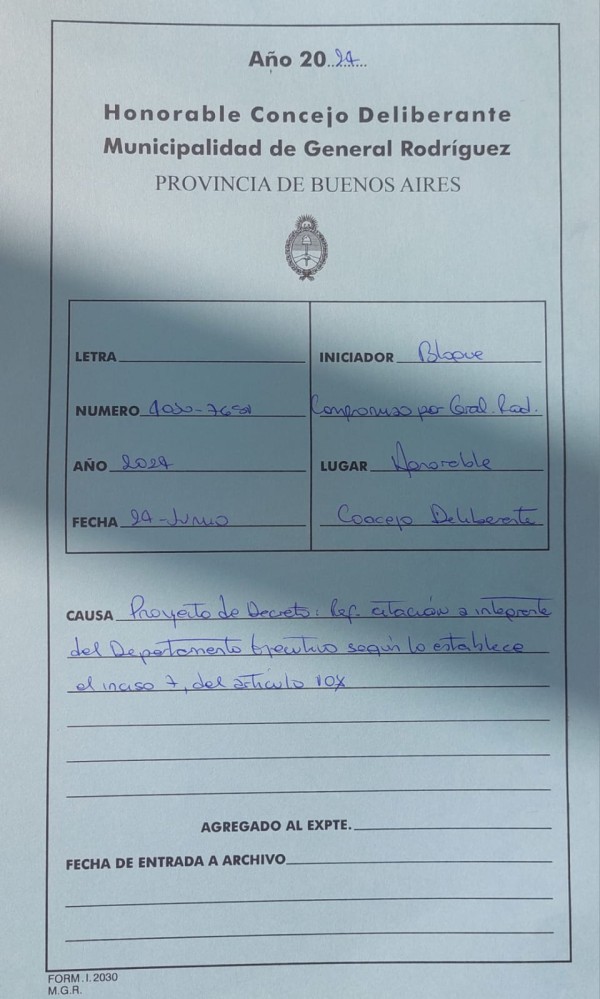 Año 20 24
Honorable Concejo Deliberante
Municipalidad de General Rodríguez
PROVINCIA DE BUENOS AIRES
LETRA
NUMERO
AÑO 2024
FECHA 24-Junio
INICIADOR Bloque
Compromiso por Gral. Rod.
LUGAR Honorable
Concejo Deliberante
CAUSA Proyecto de Decreto: Ref. citación a integrante
del Departamento Ejecutivo según lo establece
el inciso 7, del artículo
AGREGADO AL EXPTE.
FECHA DE ENTRADA A ARCHIVO
FORM. I. 2030
M.G.R.